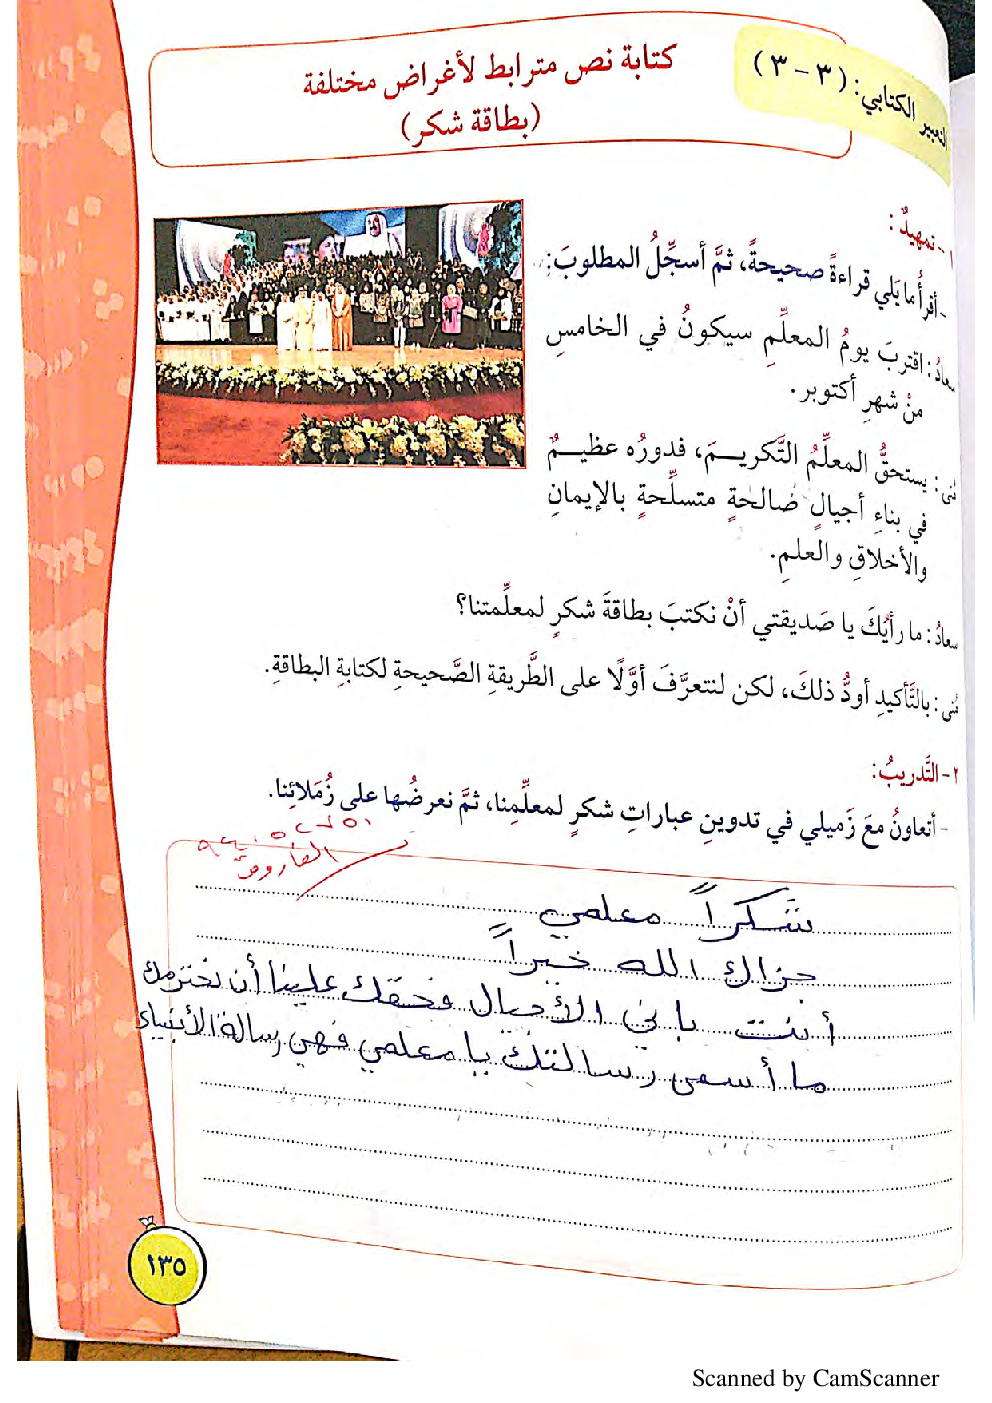 التعبير الكتابي: (٣ - ٣)
كتابة نص مترابط لأغراض مختلفة
(بطاقة شكر)
١- تمهيدٌ:
- أقرأُ ما يَلي قراءةً صحيحةً، ثمَّ أسجِّلُ المطلوبَ:
سعادُ: اقتربَ يومُ المعلِّمِ سيكونُ في الخامسِ
منْ شهرِ أكتوبر.
مُنى: يستحقُّ المعلِّمُ التَّكريـمَ، فدورُه عظيـمٌ
في بناءِ أجيالٍ صَالحةٍ متسلِّحةٍ بالإيمانِ
والأخلاقِ والعلمِ.
سعادُ: ما رأيُكَ يا صَديقتي أنْ نكتبَ بطاقةَ شكرٍ لمعلِّمتنا؟
مُنى: بالتَّأكيدِ أودُّ ذلكَ، لكن لنتعرَّفَ أوَّلًا على الطَّريقةِ الصَّحيحةِ لكتابةِ البطاقةِ.
٢- التَّدريبُ:
- أتعاونُ معَ زَميلي في تدوينِ عباراتِ شكرٍ لمعلِّمِنا، ثمَّ نعرضُها على زُمَلائِنا.
الفاروق
شكراً معلمي
جزاك الله خيراً
أنت باني الأجيال فحقك علينا أن نحترمك
ما أسمى رسالتك يا معلمي فهي رسالة الأنبياء
١٣٥
Scanned by CamScanner